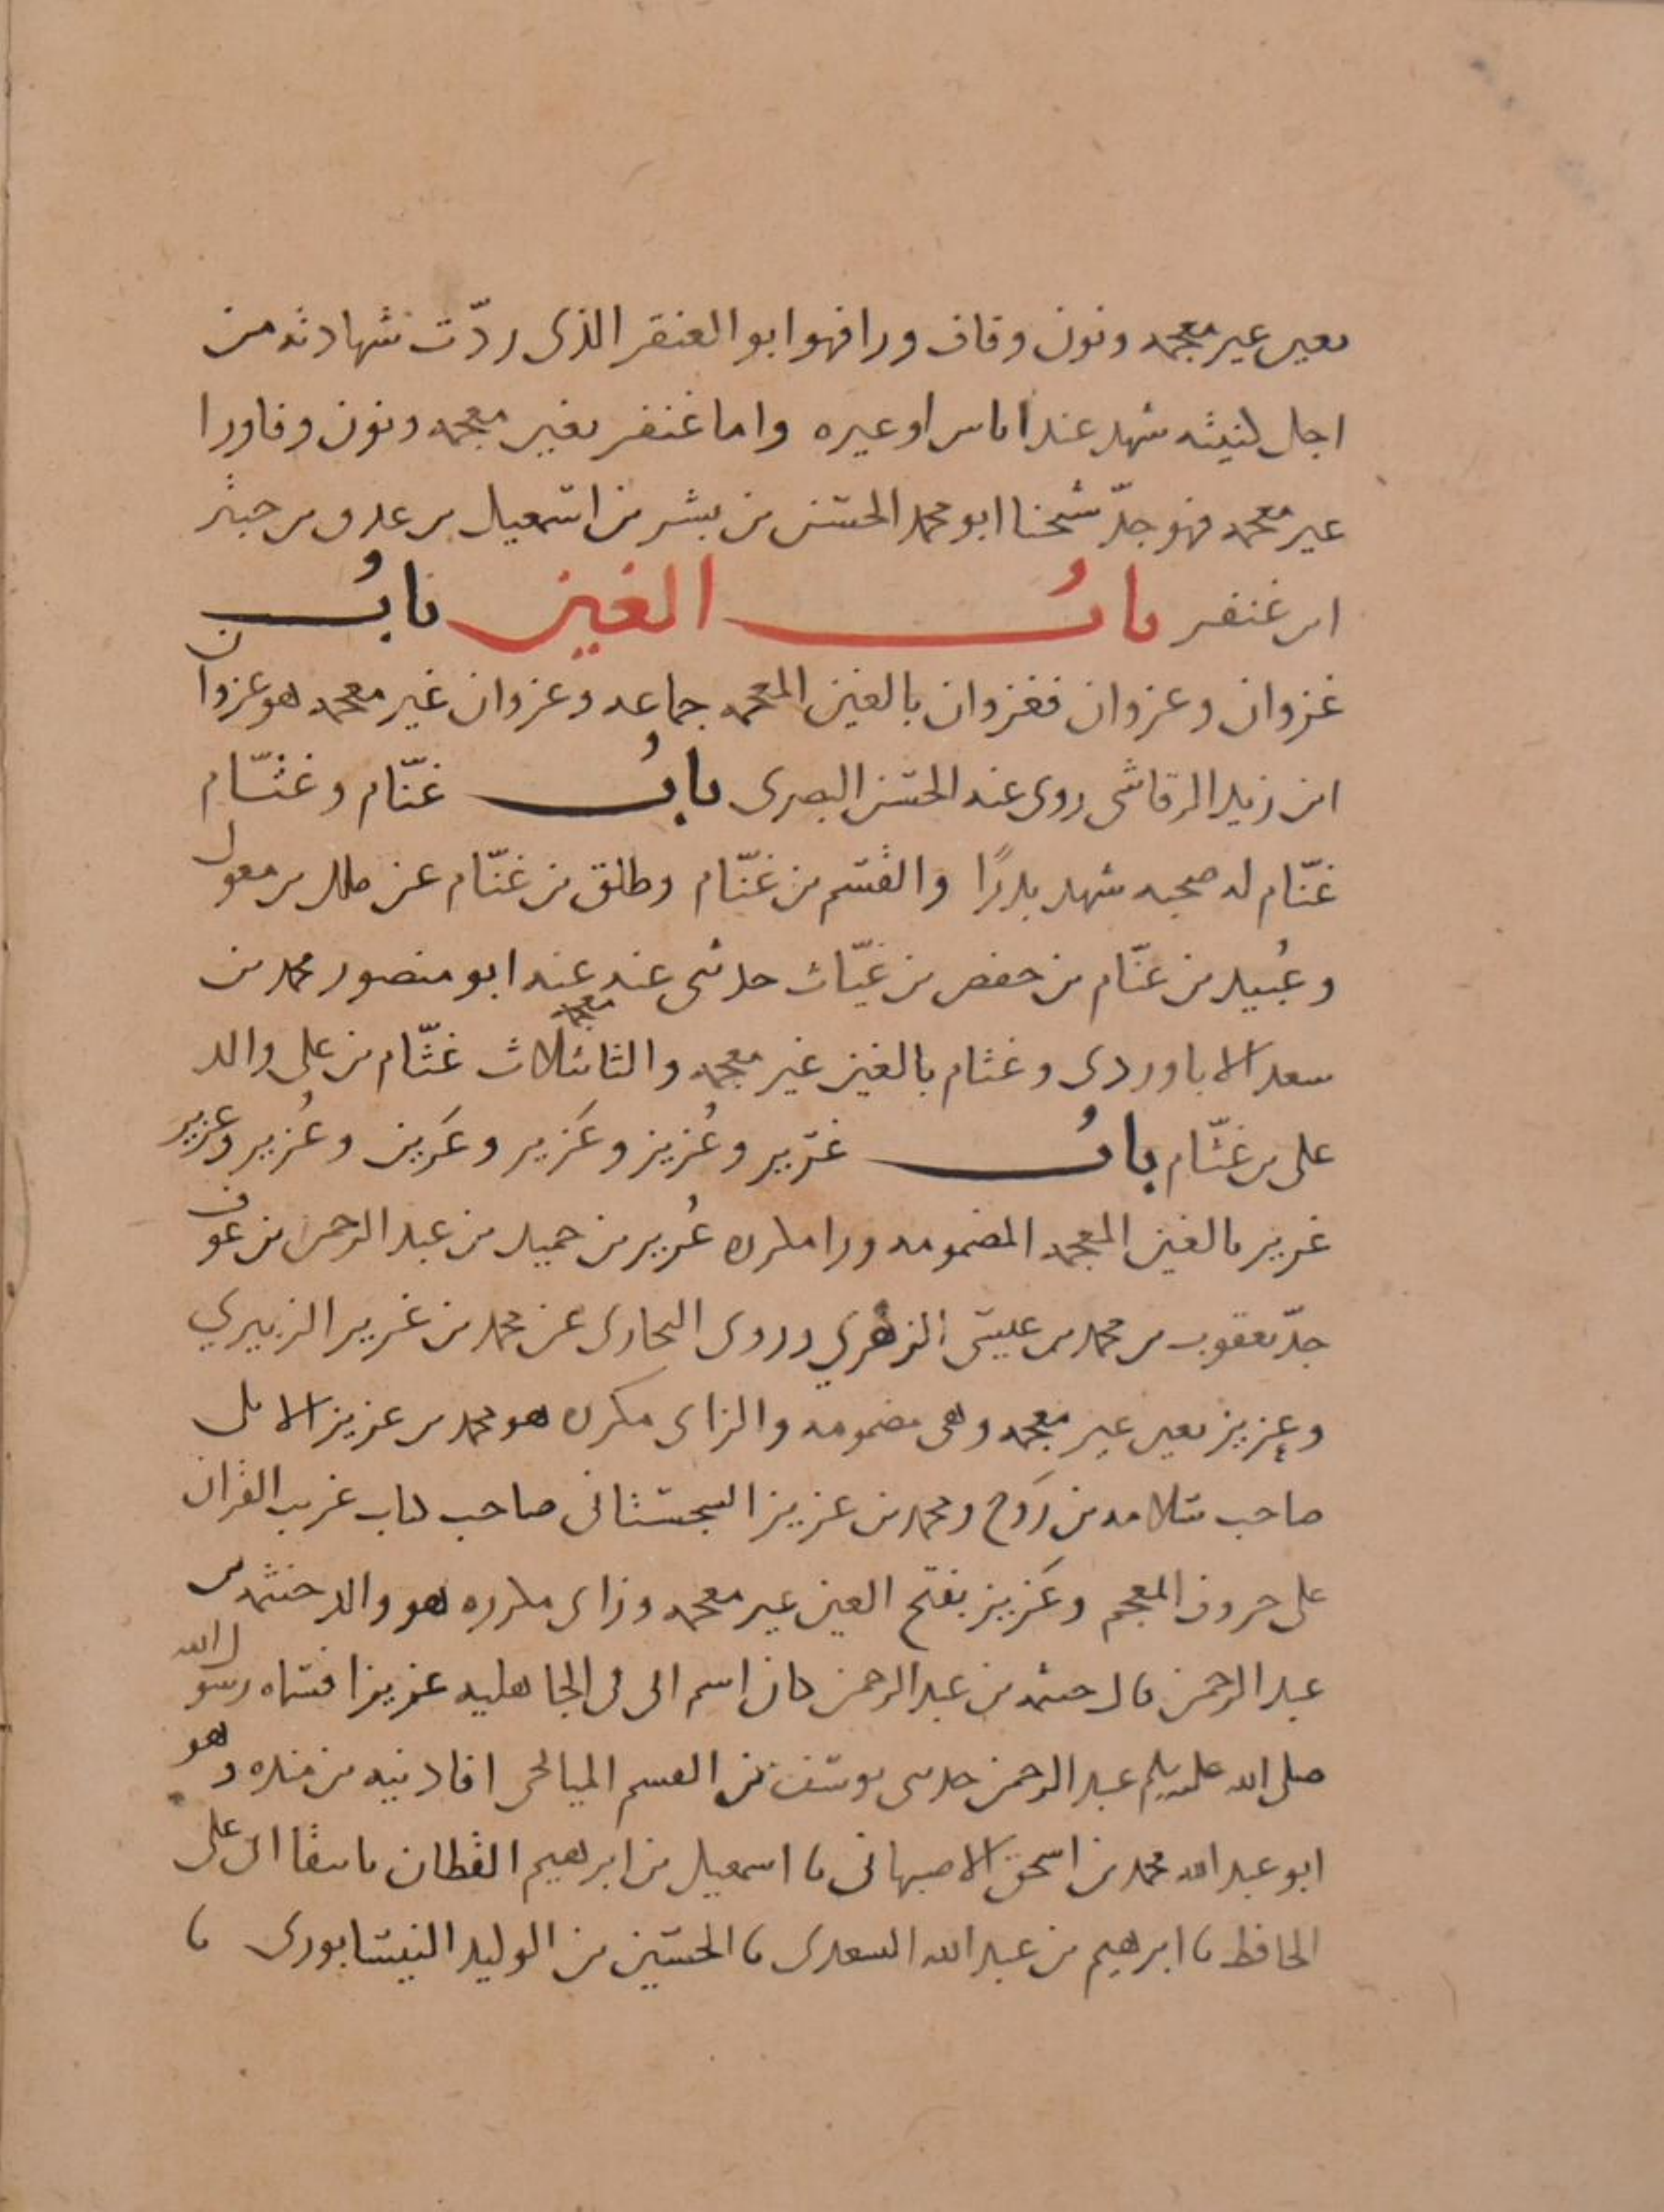 بعين غير معجمه ونون وقاف ورا فهو ابو العنقر الذى ردّت شهادته من
اجل كنيته شهد عند اياس او غيره واما غنفر بغين معجمه ونون وفا ورا
غير معجمه فهو جدّ شيخنا ابو محمد الحسن بن بشر بن اسمعيل بن غدق بن حبتر
ابن غنفر بابُ الغين بابُ
غزوان وعزوان فغزوان بالغين المعجمه جماعه وعزوان غير معجمه هو عزوان
ابن زيد الرقاشى روى عنه الحسن البصرى بابُ غنّام وعثّام
غنّام له صحبه شهد بدرًا والقسم بن غنّام وطلق بن غنّام عن ملك بن مغول
وعُبيد بن غنّام بن حفص بن غيّاث حدثنى عنه عنه ابو منصور محمد بن
سعد الاباوردى وعثام بالعين غير معجمه والثا بثلاث معجمه عثّام بن على والد
على بن عثّام بابُ غُرير وعُزيز وعَزيز وعَرين وعُزير وغرير
غرير بالغين المعجمه المضمومه ورا مكرره غُرير بن حميد بن عبد الرحمن بن عوف
جدّ يعقوب بن محمد بن عيسى الزهري وروى البخارى عن محمد بن غرير الزبيري
وعزيز بعين غير معجمه وهى مضمومه والزاى مكرره هو محمد بن عزيز الايلى
صاحب سلامه بن رَوح ومحمد بن عزيز السجستانى صاحب كتاب غريب القران
على حروف المعجم وعَزيز بفتح العين غير معجمه وزاى مكرره هو والد خيثمه بن
عبد الرحمن قال خيثمه بن عبد الرحمن كان اسم ابى فى الجاهليه عزيزا فسماه رسول الله
صلى الله عليه وسلم عبد الرحمن حدثنى يوسف بن القسم الميانجى افادنيه بن منده وهو
ابو عبد الله محمد بن اسحق الاصبهانى نا اسمعيل بن ابرهيم القطان نا على
الحافظ نا ابرهيم بن عبد الله السعدى نا الحسين بن الوليد النيسابورى نا